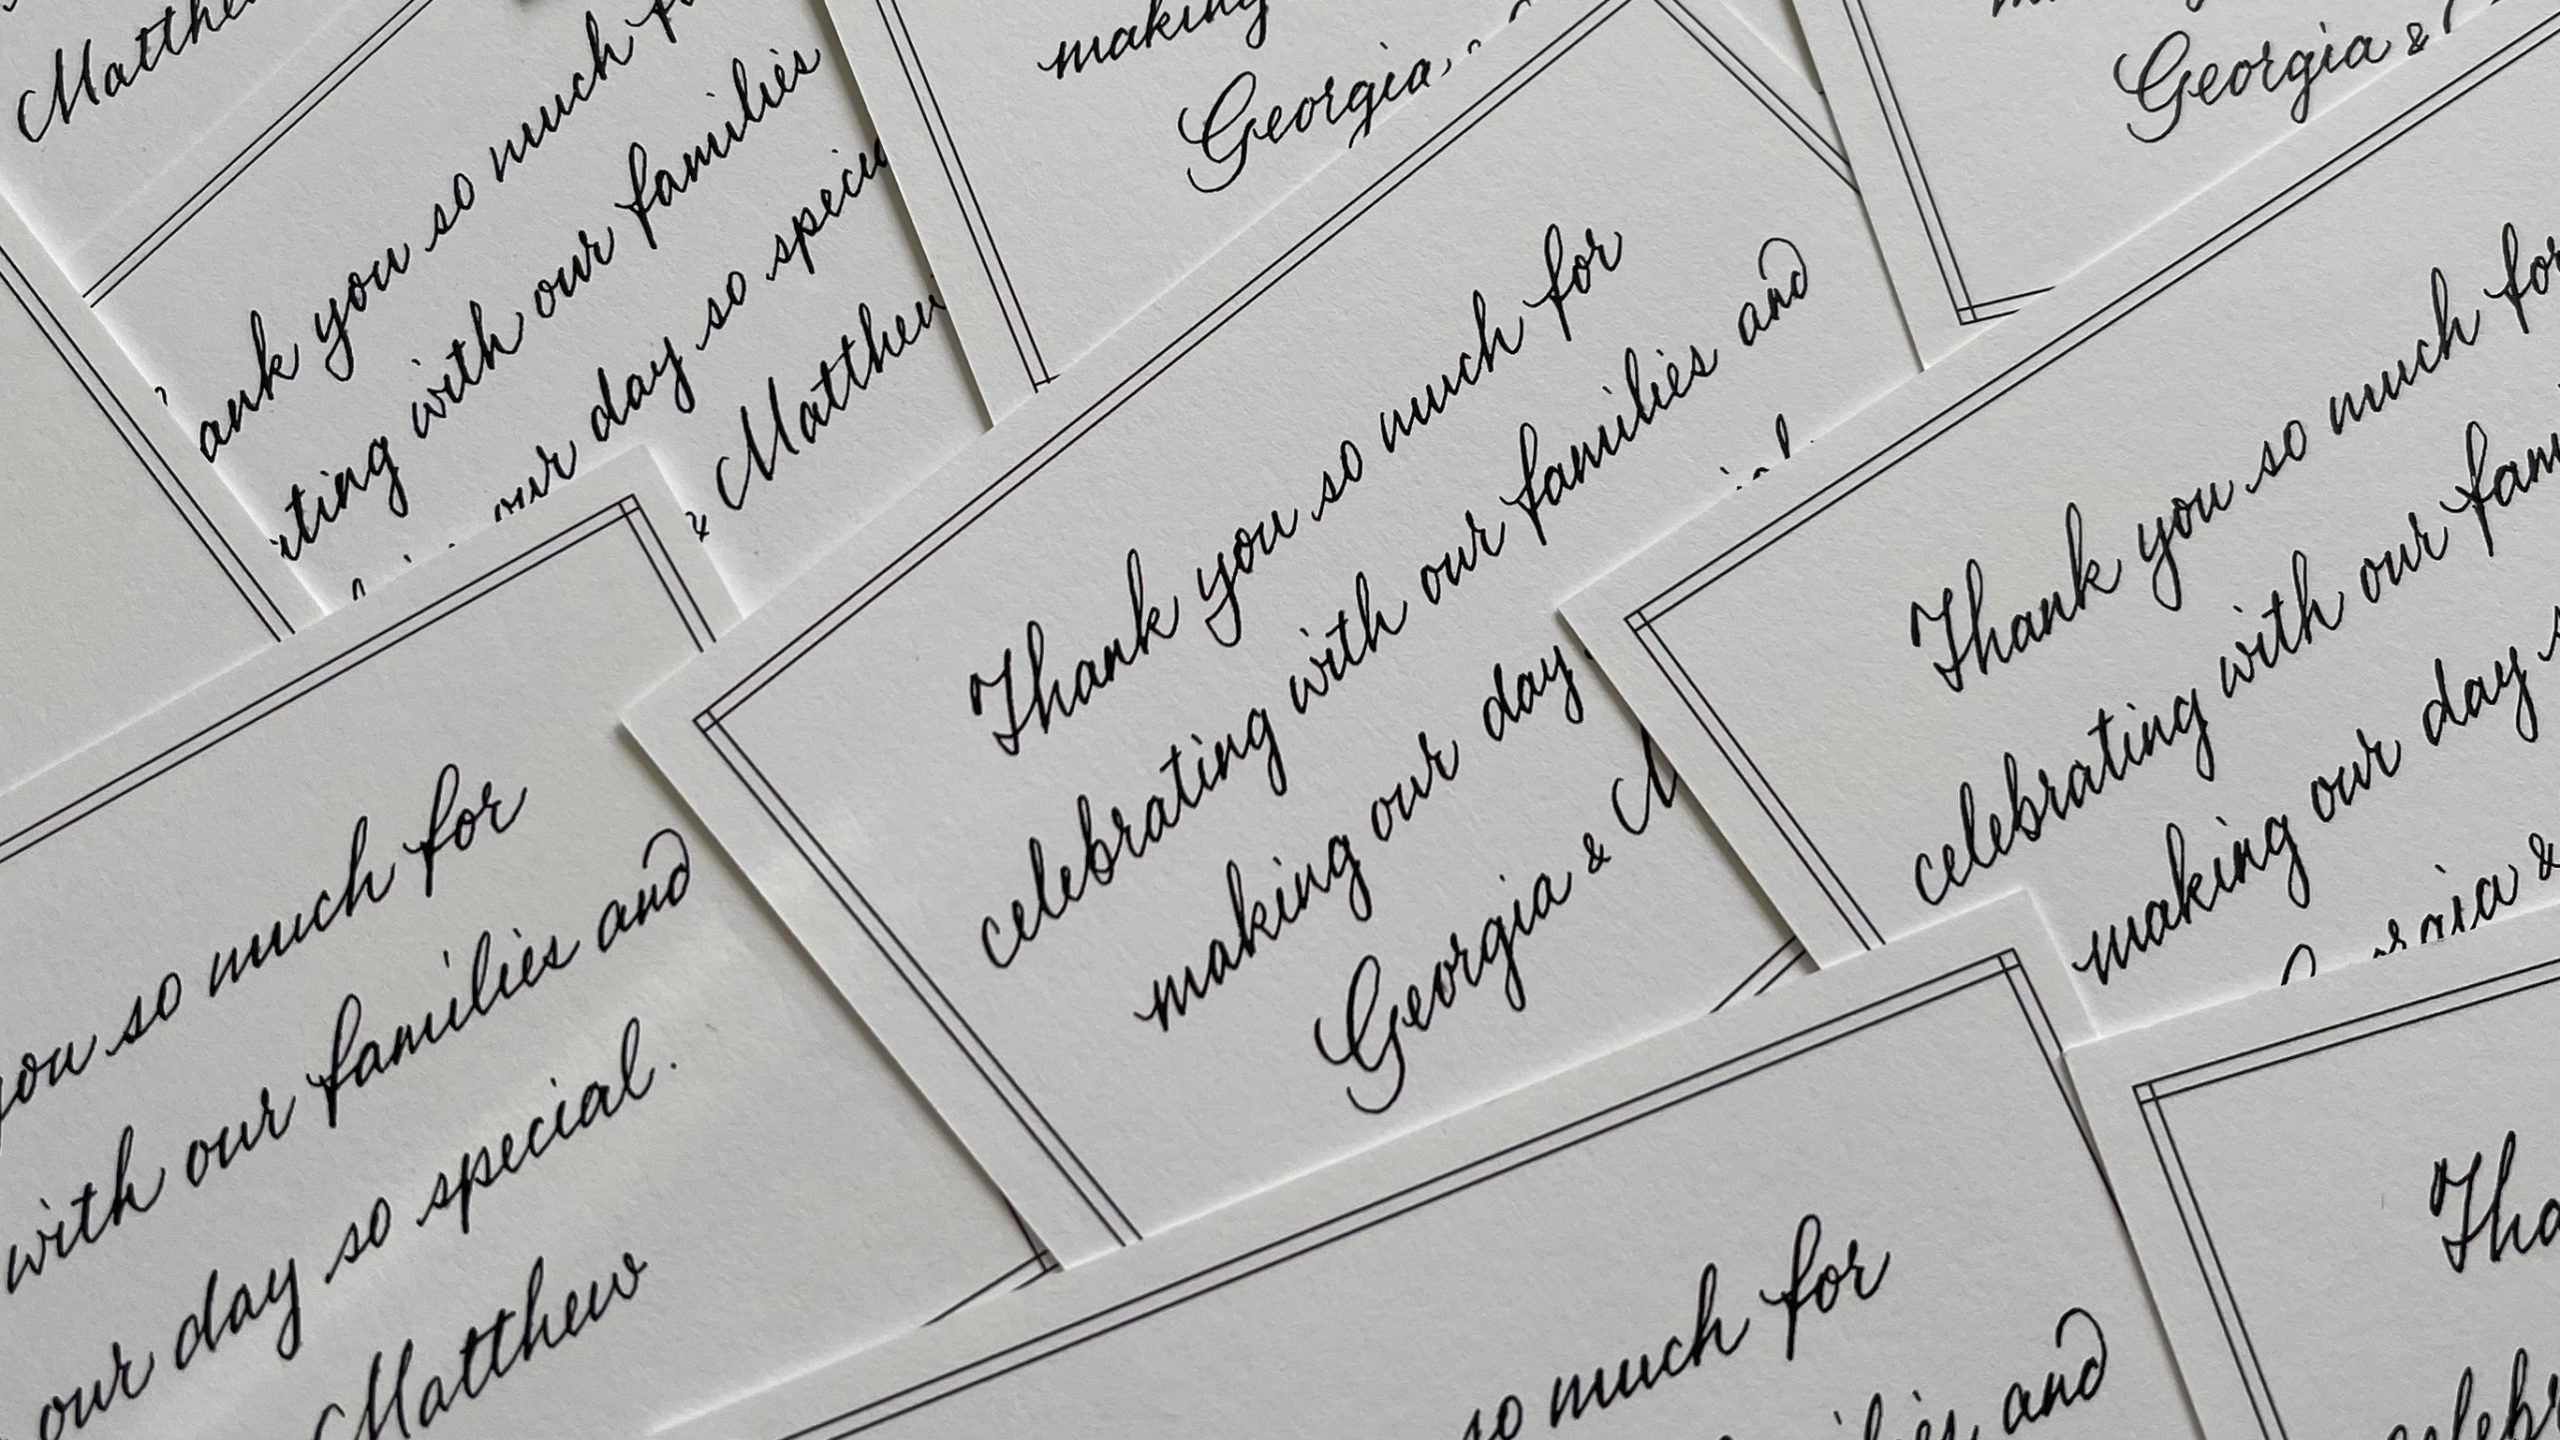 Matthew
ank you so much
ting with our families
our day so special
& Matthew
making
Georgia
Georgia &
Thank you so much for
celebrating with our families and
making our day
Georgia & M
Thank you so much for
celebrating with our fam
making our day s
Georgia &
you so much for
with our families and
our day so special.
Matthew
so much for
families and
Tha
celebr